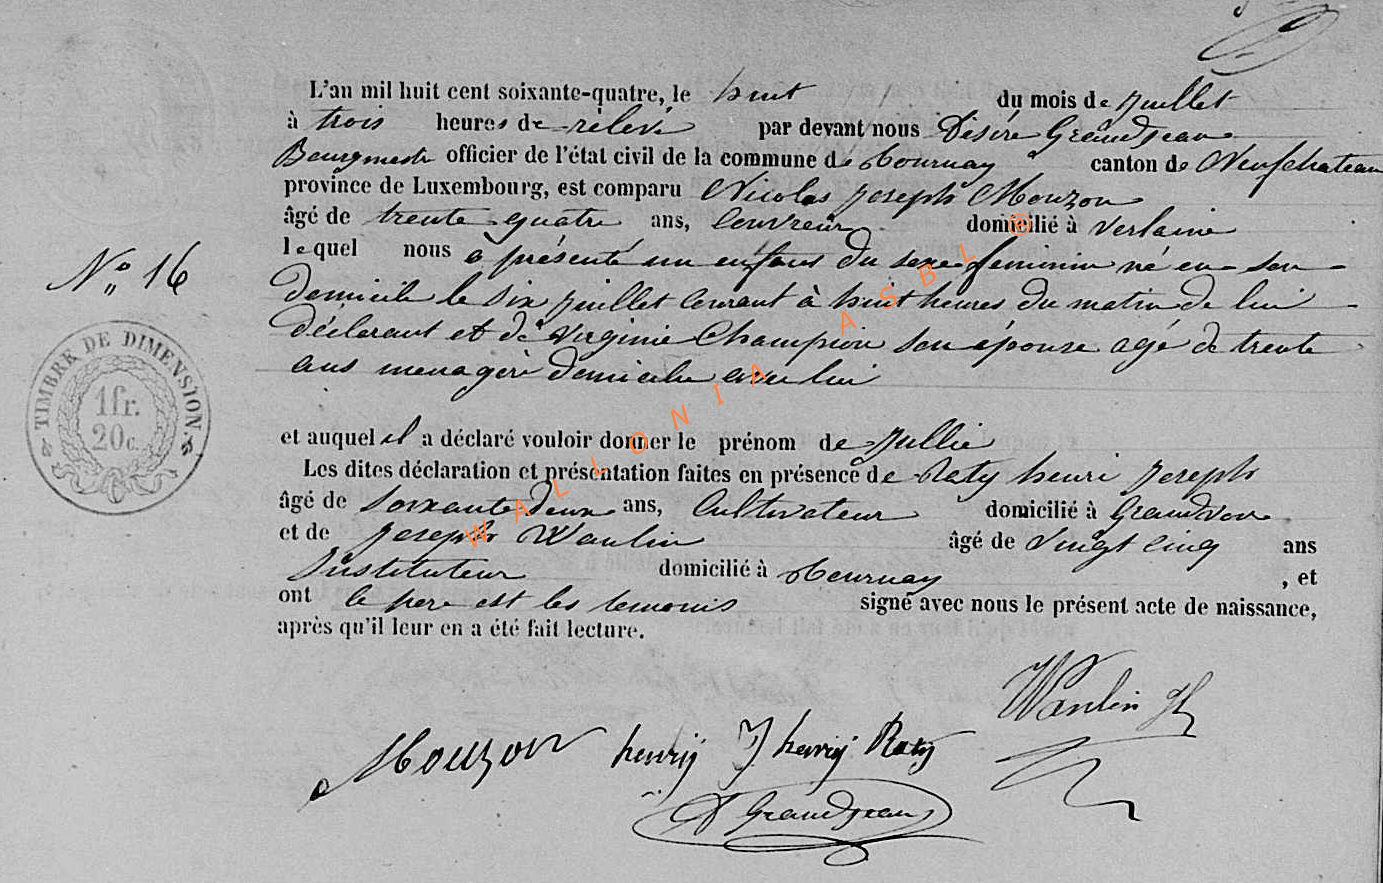 L'an mil huit cent soixante-quatre, le huit du mois de juillet
à trois heures de rélevé par devant nous Désiré Grandjean
Bourgmestre officier de l'état civil de la commune de Tournay canton de Neufchateau
province de Luxembourg, est comparu Nicolas joseph Mouzon
âgé de trente quatre ans, Couvreur domicilié à Verlaine
lequel nous a présenté un enfant du sexe feminin né en son
N° 16
domicile le six juillet courant à huit heures du matin de lui
déclarant et de Virginie Champion son épouse agé de trente
ans menagère domicilie avec lui
TIMBRE DE DIMENSION
1fr.
20c.
et auquel il a déclaré vouloir donner le prénom de jullie
Les dites déclaration et présentation faites en présence de Raty henri joseph
âgé de soixante deux ans, Cultivateur domicilié à Grandvoir
et de joseph Wanlin âgé de vingt cinq ans
Instituteur domicilié à Tournay , et
ont le pere est les temoins signé avec nous le présent acte de naissance,
après qu'il leur en a été fait lecture.
WALLONIA ASBL ©
Wanlin
Mouzon henrij J henrij Raty
D Grandjean